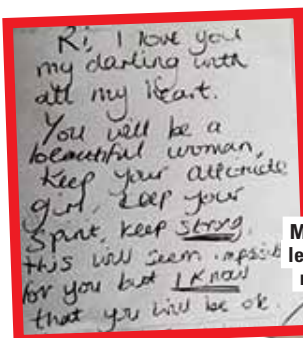 Ri, I love you
my darling with
all my heart.
You will be a
beautiful woman,
keep your attitude
girl, keep your
Spirit, keep strong.
this will seem impossib
for you but I know
that you will be ok.
M
le